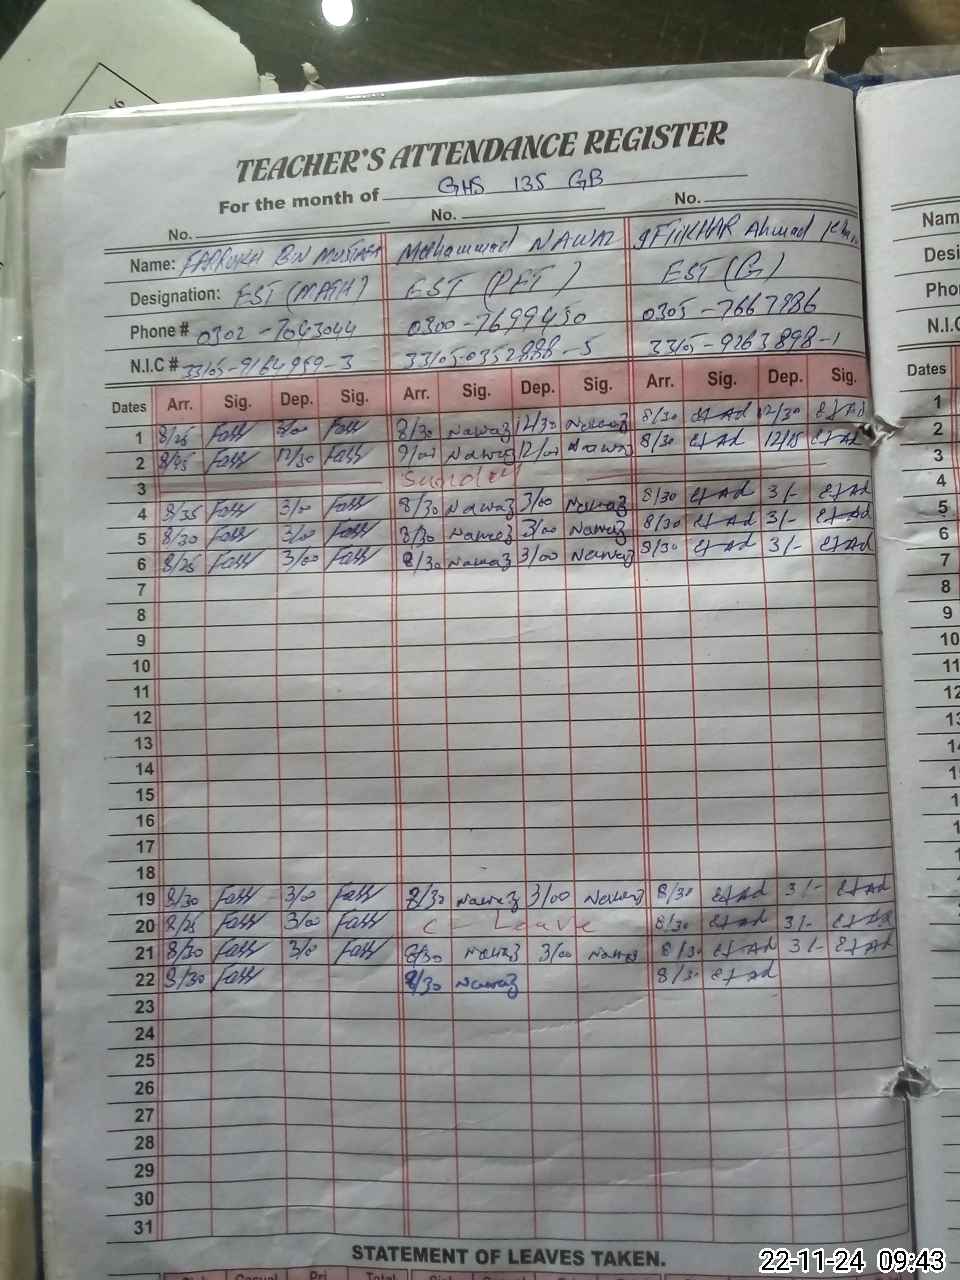 TEACHER'S ATTENDANCE REGISTER
For the month of GHS 135 GB
No. No. No.
Name: FARRUKH BIN MUSTAFA Mohammad NAWAZ IFTIKHAR Ahmad
Designation: EST (MATH) EST (PET) EST (G)
Phone # 0302 - 7643044 0300-7699450 0305-7667986
N.I.C # 33105-9164959-3 33105-0352888-5 33105-9263898-1
Dates Arr. Sig. Dep. Sig. Arr. Sig. Dep. Sig. Arr. Sig. Dep. Sig.
1 8/25 3/00 8/30 Nawaz 12/30 Nawaz 8/30 12/30
2 8/25 12/30 9/00 Nawaz 12/00 Nawaz 8/30 12/15
3 Sunday
4 8/35 3/00 8/30 Nawaz 3/00 Nawaz 8/30 3/-
5 8/30 3/00 8/30 Nawaz 3/00 Nawaz 8/30 3/-
6 8/25 3/00 8/30 Nawaz 3/00 Nawaz 8/30 3/-
7
8
9
10
11
12
13
14
15
16
17
18
19 8/30 3/00 8/30 Nawaz 3/00 Nawaz 8/30 3/-
20 8/25 3/00 C - Leave 8/30 3/-
21 8/30 3/00 8/30 Nawaz 3/00 Nawaz 8/30 3/-
22 8/30 8/30 Nawaz 8/30
23
24
25
26
27
28
29
30
31
STATEMENT OF LEAVES TAKEN.
Casual Pri Total
Dates
1
2
3
4
5
6
7
8
9
10
11
12
22-11-24 09:43